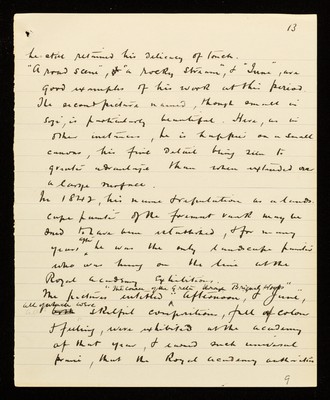 13
he still retained his delicacy of touch.
"A road scene", & "a rocky stream", & "June", are
good examples of his work at this period.
The second picture named, though small in
size, is particularly beautiful. Here, as in
other instances, he is happier on a small
canvas, his fine detail being seen to
greater advantage than when extended over
a large surface.
In 1842, his name & reputation as a lands-
cape painter of the foremost rank may be
said to have been established, & for many
years after he was the only landscape painter
who was hung on the line at the
Royal Academy Exhibitions.
"The Course of the Greta through Brignal Woods"
The pictures entitled "Afternoon", & "June",
all of which were
both skilful composition, full of colour
& feeling, were exhibited at the academy
of that year, & earned such universal
praise, that the Royal Academy authorities
9